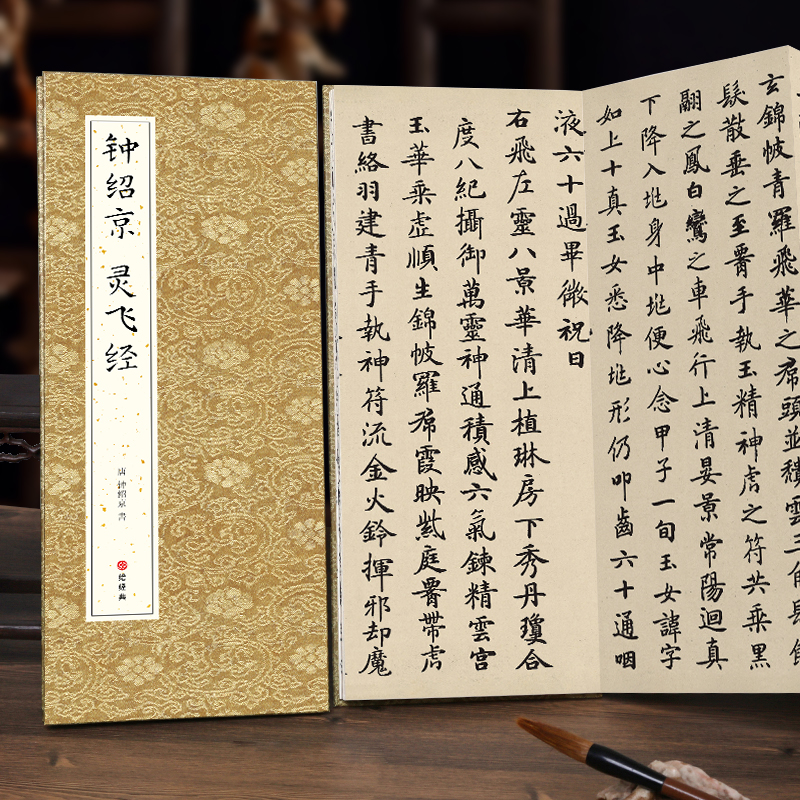 钟绍京 灵飞经
唐 钟绍京 书
经典
玄錦帔青羅飛華之帬頭並穨雲三角長餘
髮散垂之至腰手執玉精神虎之符共乘黑
翮之鳳白鸞之車飛行上清晏景常陽迴真
下降入兆身中兆便心念甲子一旬玉女諱字
如上十真玉女悉降兆形仍叩齒六十通咽
液六十過畢微祝曰
右飛左靈八景華清上植琳房下秀丹瓊合
度八紀攝御萬靈神通積感六氣鍊精雲宮
玉華乘虛順生錦帔羅帬霞映紫庭腰帶虎
書絡羽建青手執神符流金火鈴揮邪却魔